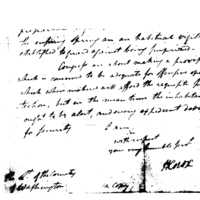 the ensuing Spring are an habitual vigil
established to guard against being surprised.
Congress are about making a provis
which is conceived to be adequate for offensive ope
which when matured will afford the requisite pr
tection, but in the mean time the inhabitan
ought to be alert, and every expedient devi
for security
I am
with respect
your very humble serv.
HKnox
The Lt. of the County
of Washington
a copy